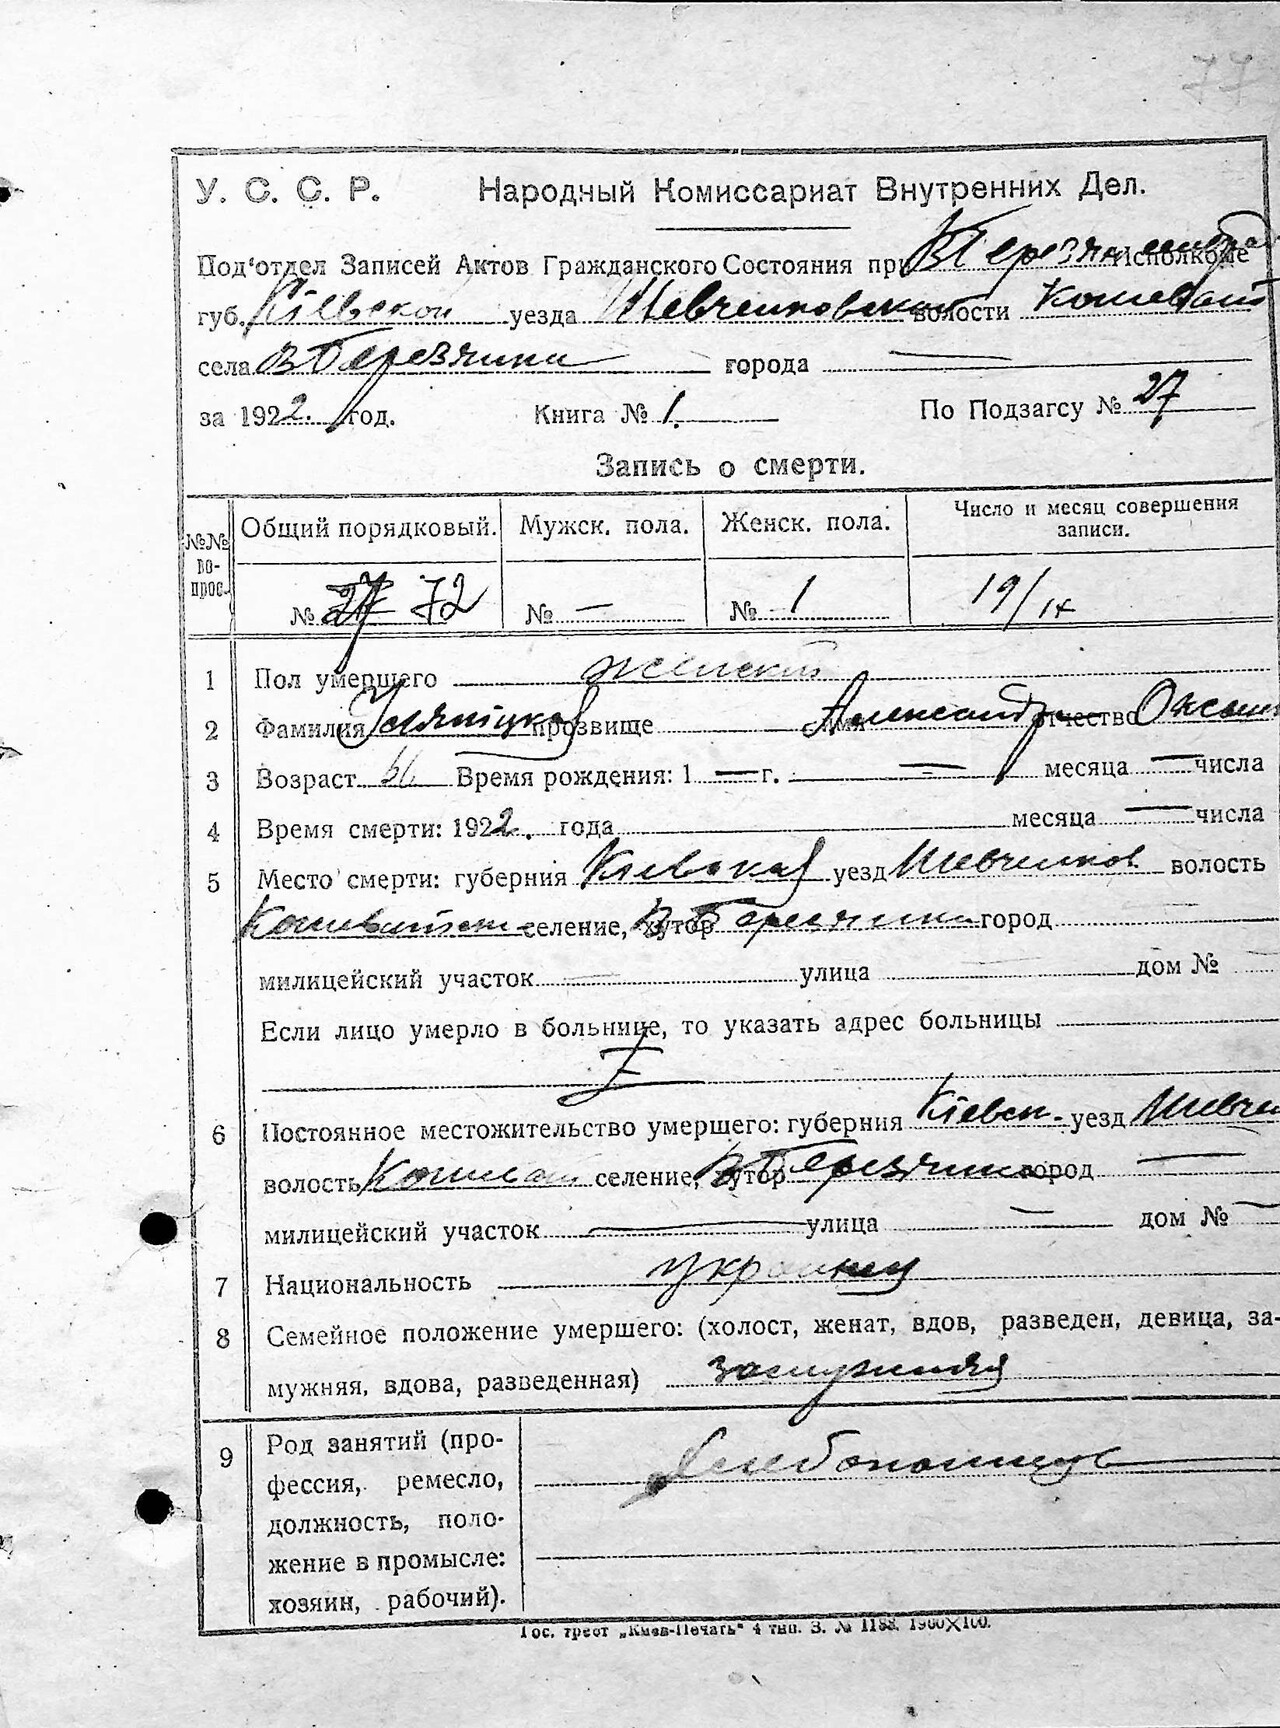 77
У. С. С. Р. Народный Комиссариат Внутренних Дел.
Под'отдел Записей Актов Гражданского Состояния при Исполкоме
губ. Кіевской уезда Шевченковской волости Кошеват
села В Березянки города —
за 1922. год. Книга № 1. По Подзагсу № 27
Запись о смерти.
№№ вопрос. Общий порядковый. Мужск. пола. Женск. пола. Число и месяц совершения записи.
№ 27 72 № — № 1 19/IX
1 Пол умершего женский
2 Фамилия прозвище имя Александра отчество
3 Возраст Время рождения: 1 — г. — месяца — числа
4 Время смерти: 1922. года месяца — числа
5 Место смерти: губерния Кіевская уезд Шевченков волость
селение, хутор В Березянка город —
милицейский участок — улица — дом № —
Если лицо умерло в больнице, то указать адрес больницы
6 Постоянное местожительство умершего: губерния Кіевск - уезд Шевчен
волость Кошеват селение, хутор В Березянка город —
милицейский участок — улица — дом № —
7 Национальность
8 Семейное положение умершего: (холост, женат, вдов, разведен, девица, за-
мужняя, вдова, разведенная) замужняя
9 Род занятий (про-
фессия, ремесло,
должность, поло-
жение в промысле:
хозяин, рабочий).
Гос. трест „Киев-Печать" 4 тип. З. № 1188. 1900×100.